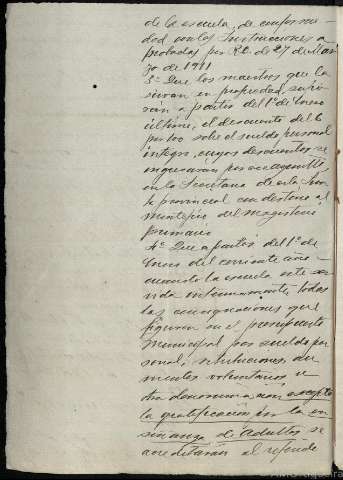 de la escuela, de conformi-
dad con las Instrucciones a-
probadas por R.O. de 27 de Mar-
zo de 1911
3º Que los maestros que la
sirvan en propiedad, sufri-
rán a partir del 1º de Enero
último, el descuento del 6
por 100 sobre el sueldo personal
íntegro, cuyos descuentos se
ingresarán por
en la Secretaría de esta Jun-
ta provincial con destino al
Montepío del Magisterio
primario
4º Que a partir del 1º de
Enero del corriente año
cuando la escuela esté ser-
vida interinamente, todas
las consignaciones que
figuran en el presupuesto
municipal por sueldo per-
sonal, retribuciones au-
mentos voluntarios u
otra denominación, excepto
la gratificación por la en-
señanza de adultos se
acreditarán al referido